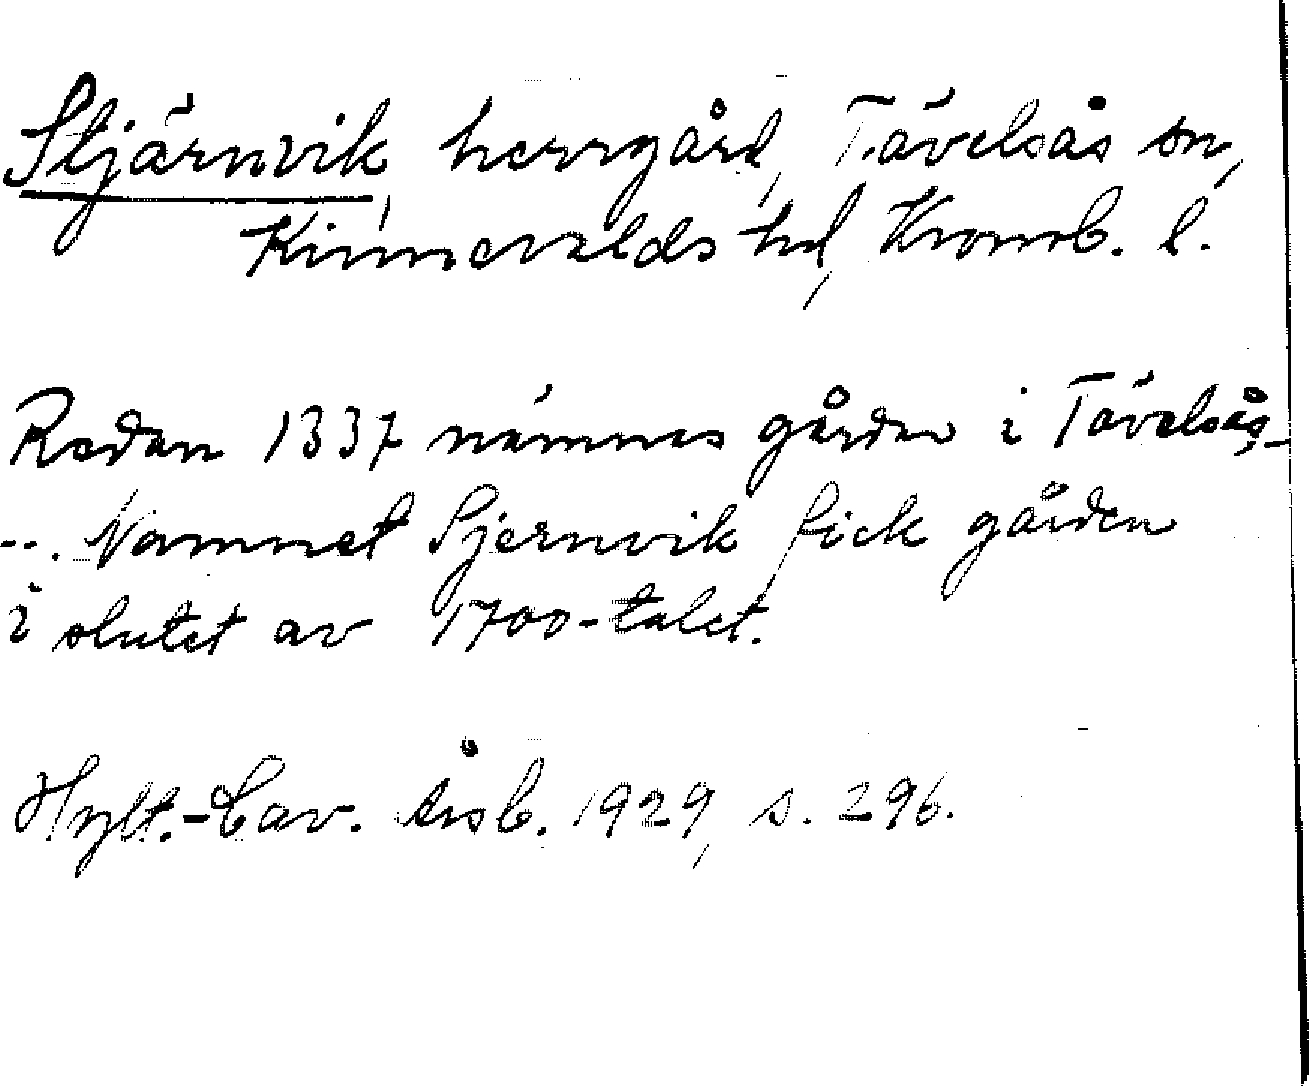 Stjärnvik, herrgård, Tävelsås sn,
Kinnevalds hd, Kronob. l.
Redan 1337 nämnes gården i Tävelsås -
--. Namnet Sjernvik fick gården
i slutet av 1700-talet.
Hylt.-Cav. årsb. 1929, s. 296.